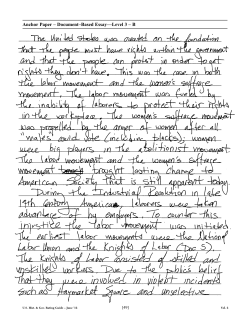 Anchor Paper – Document–Based Essay—Level 3 – B
The United States was created on the foundation
that the people must have rights within the government
and that the people can protest in order to get
rights they don't have. This was the case in both
the labor movement and the women's suffrage
movement. The labor movement was fueled by
the inability of laborers to protect their rights
in the workplace. The women's suffrage movement
was propelled by the anger of women after all
"males" could vote (including blacks); women
were big players in the abolitionist movement.
The labor movement and the women's suffrage
movement brought lasting change to
American Society that is still apparent today.
During the Industrial Revolution in late
19th century America, laborers were taken
advantage of by employers. To counter this
injustice the labor movement was initiated.
The earliest labor movements were the National
Labor Union and the Knights of Labor (Doc 5).
The Knights of Labor consisted of skilled and
unskilled workers. Due to the public's belief
that they were involved in violent incidents
such as haymarket square and unselective